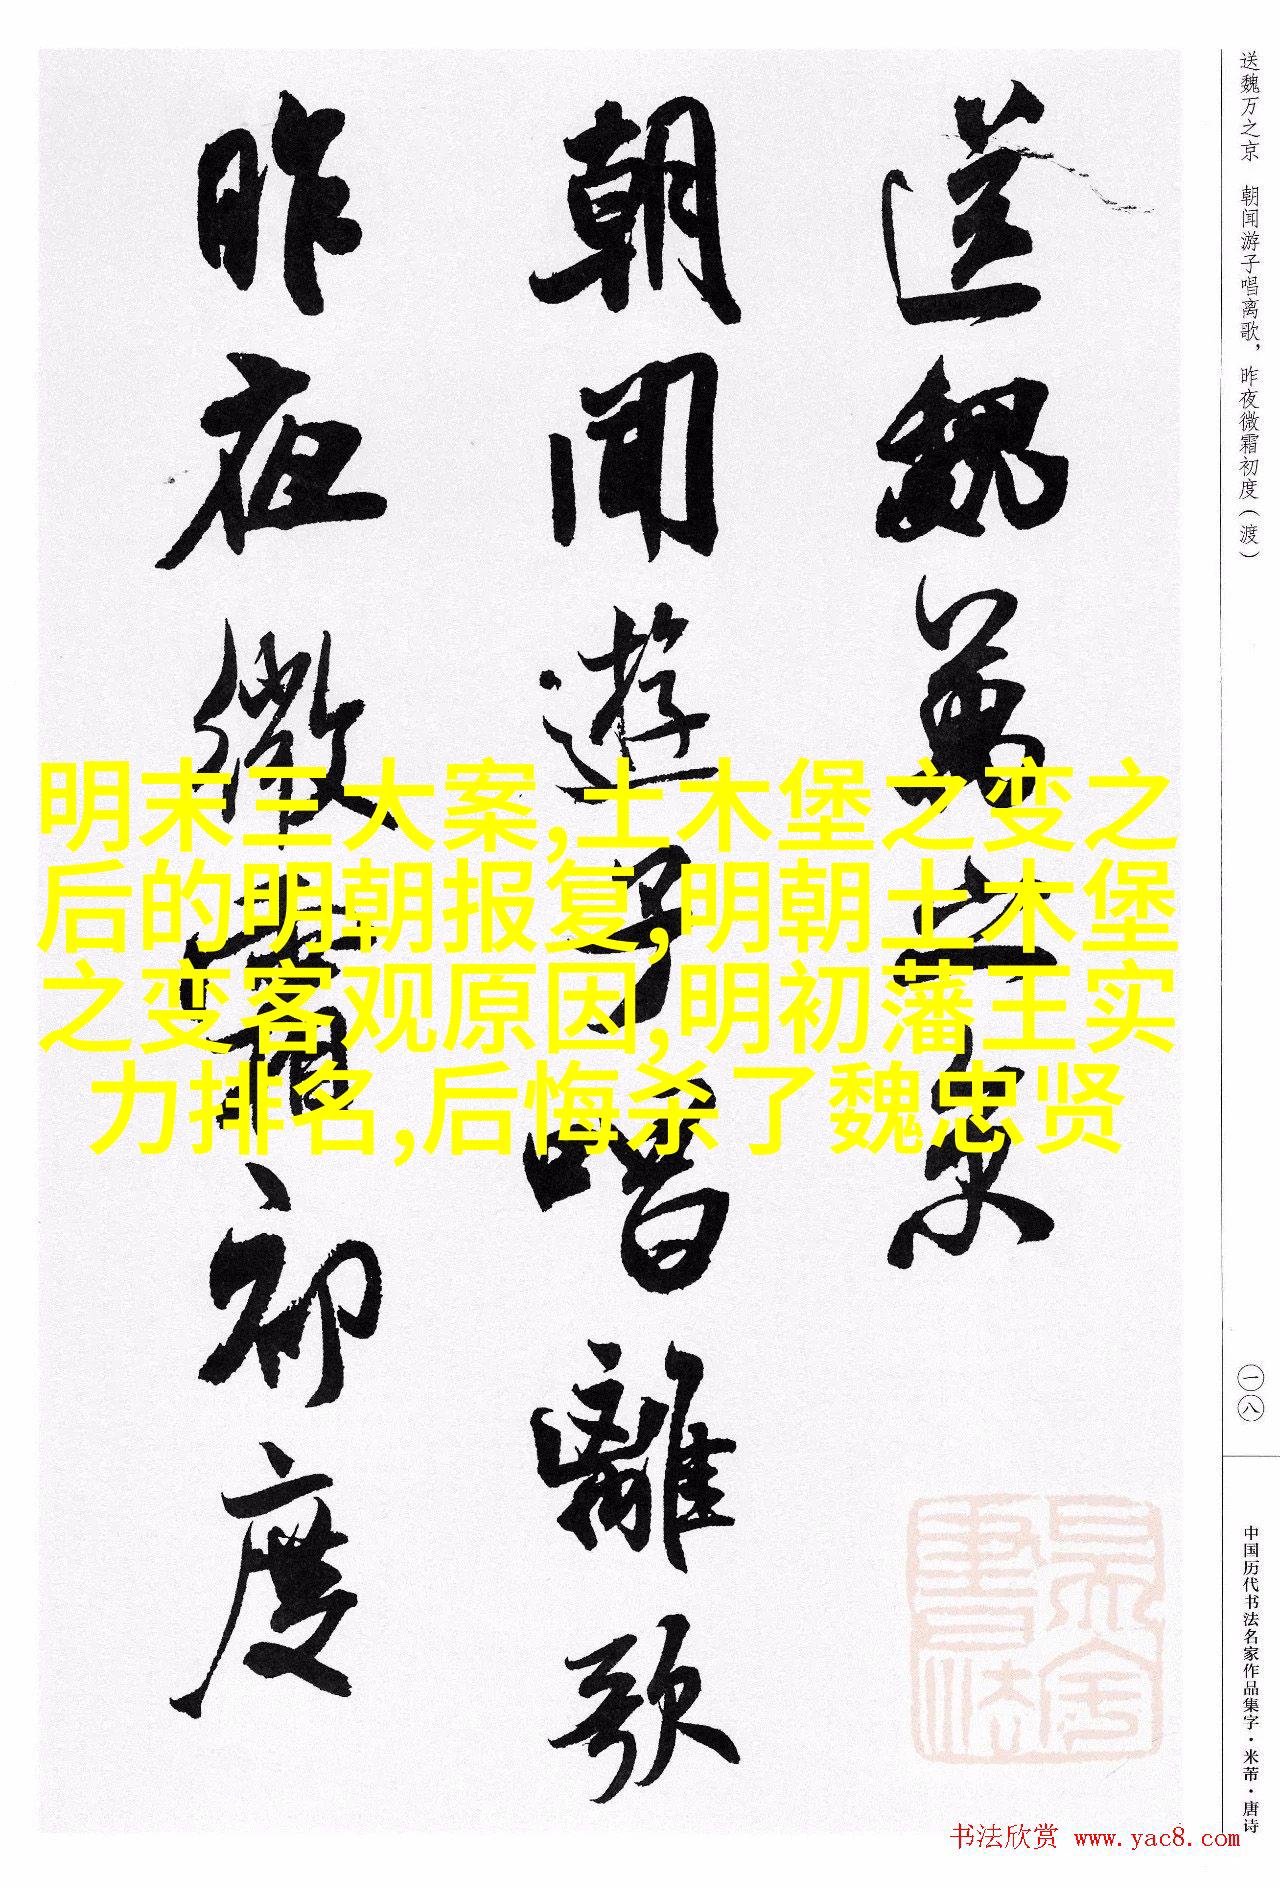 送魏萬之京
朝聞遊子唱離歌
昨夜微霜初度
明末三大案,土木堡之变之
后的明朝报复,明朝土木堡
之变客观原因,明初藩王实
力排名,后悔杀了魏忠贤
送魏万之京　朝闻游子唱离歌，昨夜微霜初度（渡）
一八
中国历代书法名家作品集字·米芾·唐诗
书法欣赏 www.yac8.com